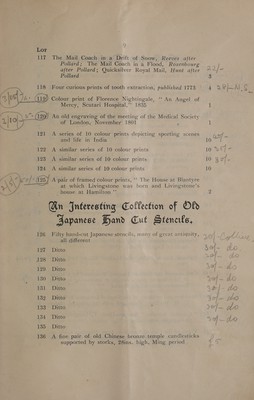 Lot
117 The Mail Coach in a Drift of Snow, Barnes after
Pollard; The Mail Coach in a Flood, Rosenbourg
after Pollard; Quicksilver Royal Mail, Hunt after
Pollard 3
118 Four curious prints of tooth extraction, published 1773 4
119 Colour print of Florence Nightingale, "An Angel of
Mercy, Scutari Hospital," 1855 1
120 An old engraving of the meeting of the Medical Society
of London, November 1801 1
121 A series of 10 colour prints depicting sporting scenes
and life in India 10
122 A similar series of 10 colour prints 10
123 A similar series of 10 colour prints 10
124 A similar series of 10 colour prints 10
125 A pair of framed colour prints, "The House at Blantyre
at which Livingstone was born and Livingstone's
house at Hamilton" 2
An Interesting Collection of Old
Japanese Hand Cut Stencils.
126 Fifty handcut Japanese stencils, many of great antiquity,
all different
127 Ditto 30/- do
128 Ditto 20/- do
129 Ditto 30/- do
130 Ditto 30/- do
131 Ditto 30/- do
132 Ditto 30/- do
133 Ditto do
134 Ditto do
135 Ditto
136 A fine pair of old Chinese bronze temple candlesticks
supported by storks, 28ins. high, Ming period